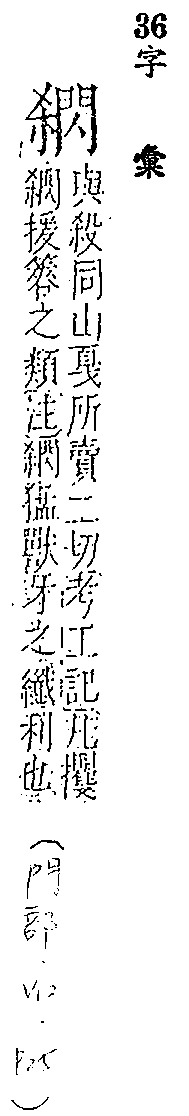 36 字 彙
閷
與殺同山戛所賣二切考工記凡攫
閷援簭之類注閷猛獸牙之纖利也
(門部